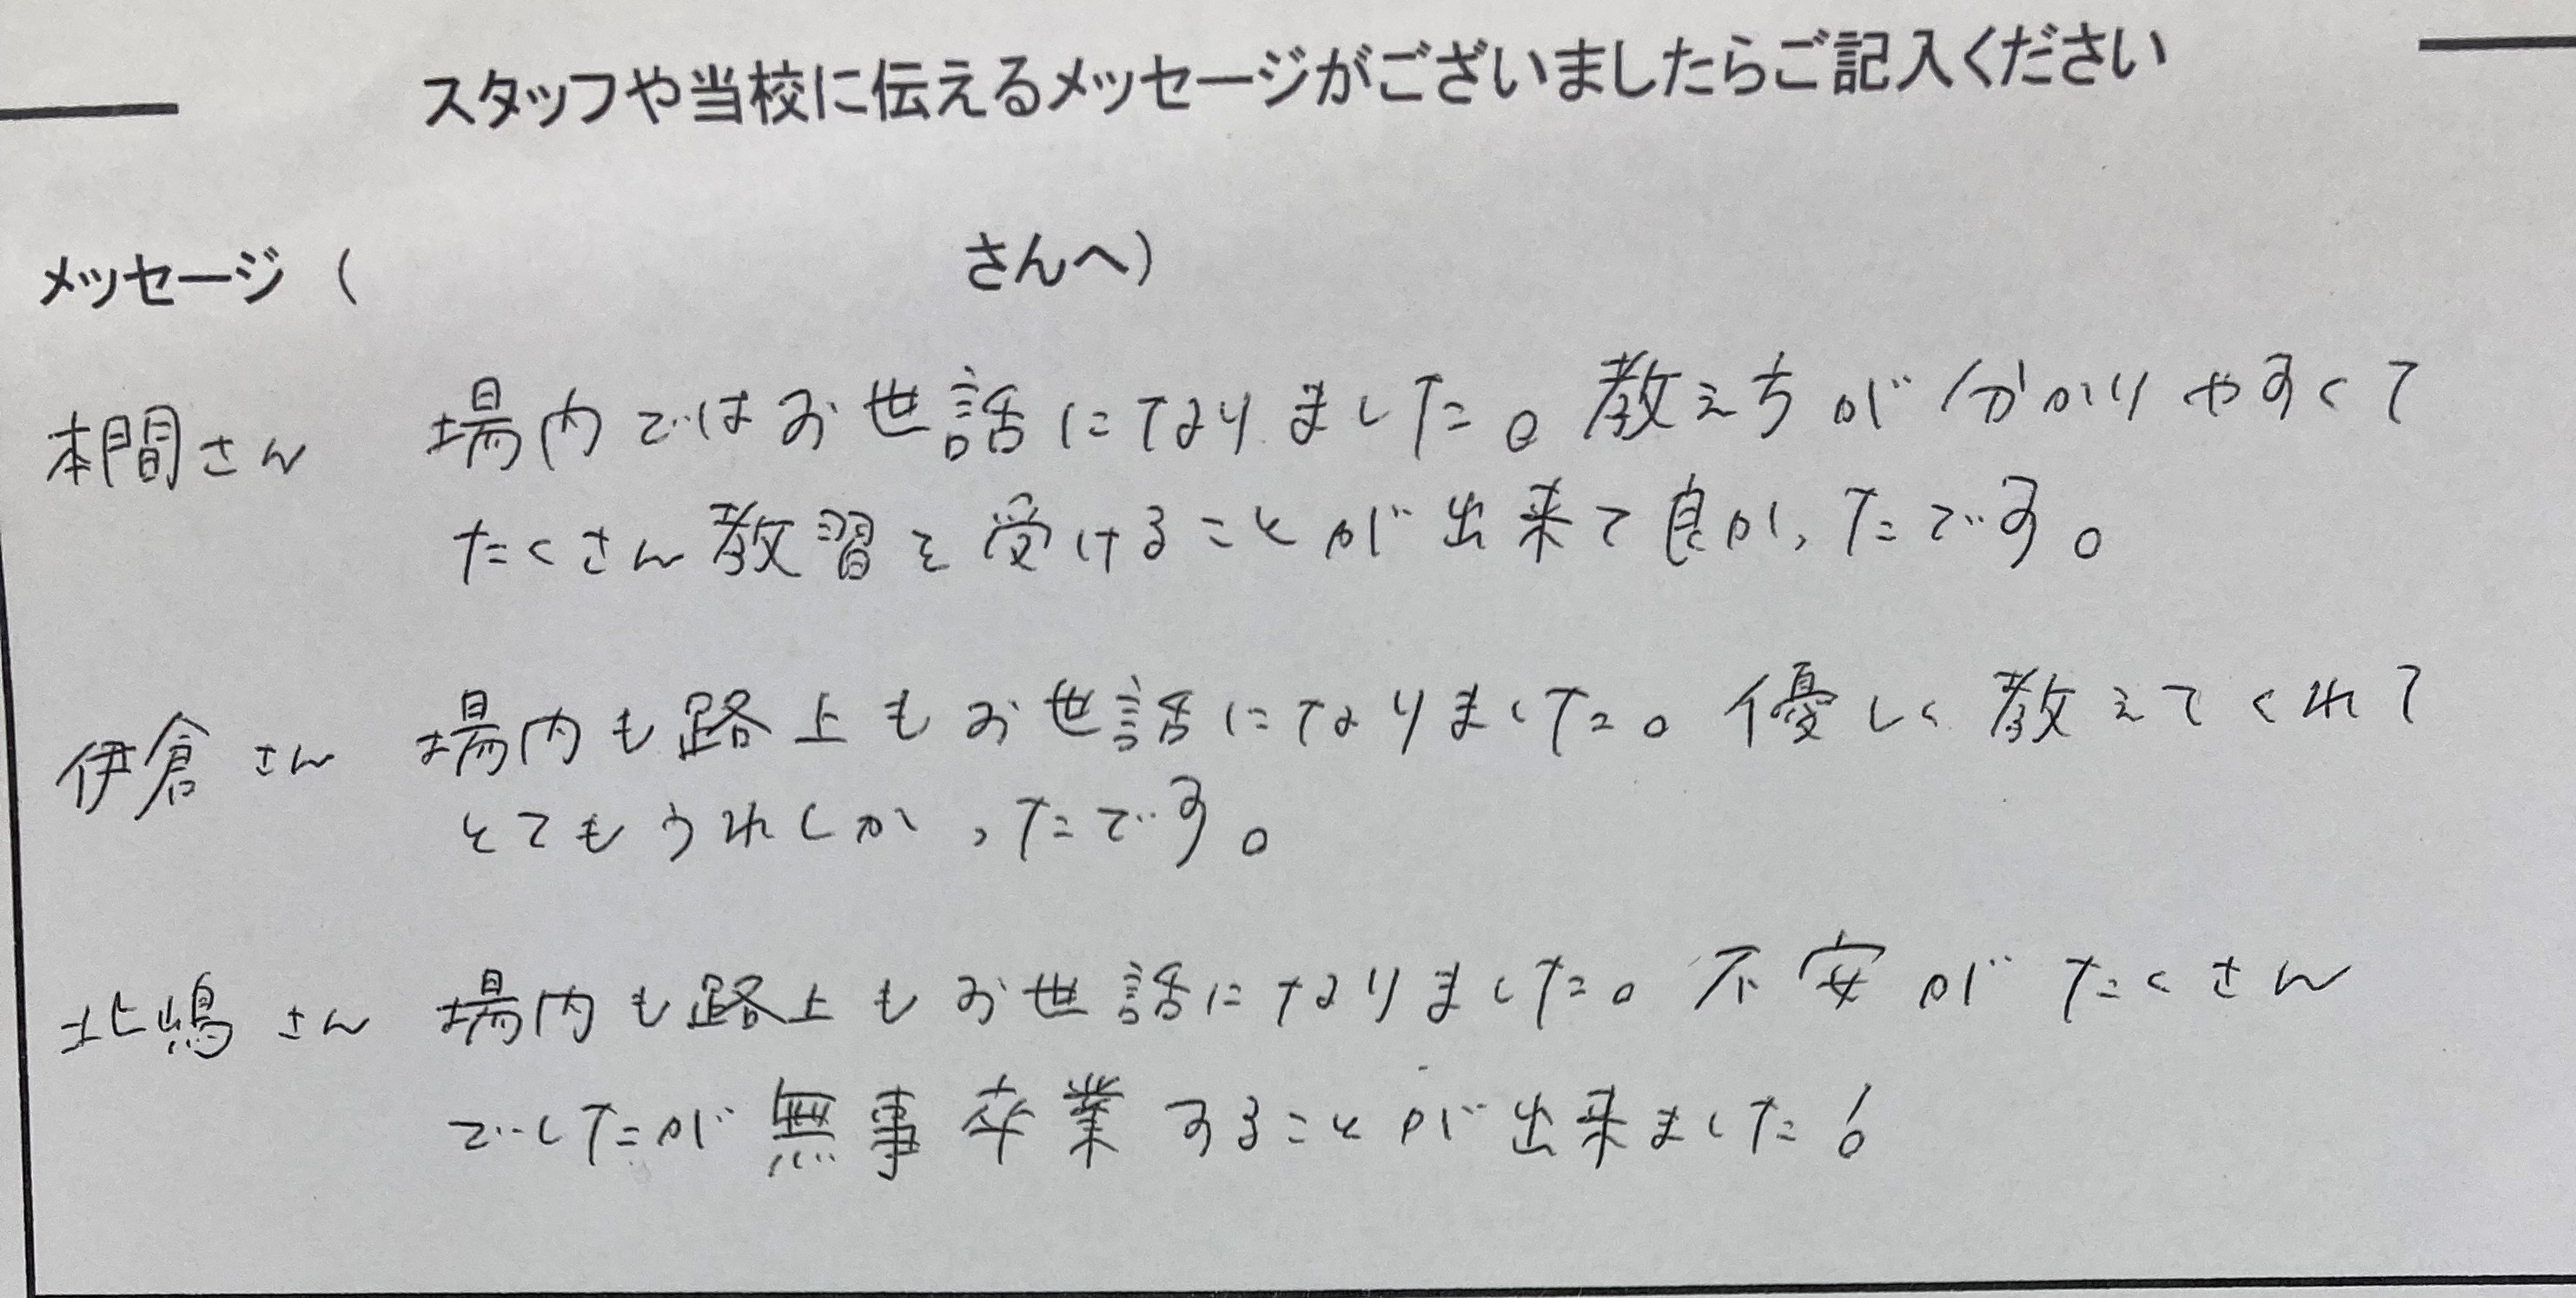 スタッフや当校に伝えるメッセージがございましたらご記入ください
メッセージ（　　　　　さんへ）
本間さん　場内ではお世話になりました。教え方が分かりやすくて
たくさん教習を受けることが出来て良かったです。
伊倉さん　場内も路上もお世話になりました。優しく教えてくれて
とてもうれしかったです。
北嶋さん　場内も路上もお世話になりました。不安がたくさん
でしたが無事卒業することが出来ました！